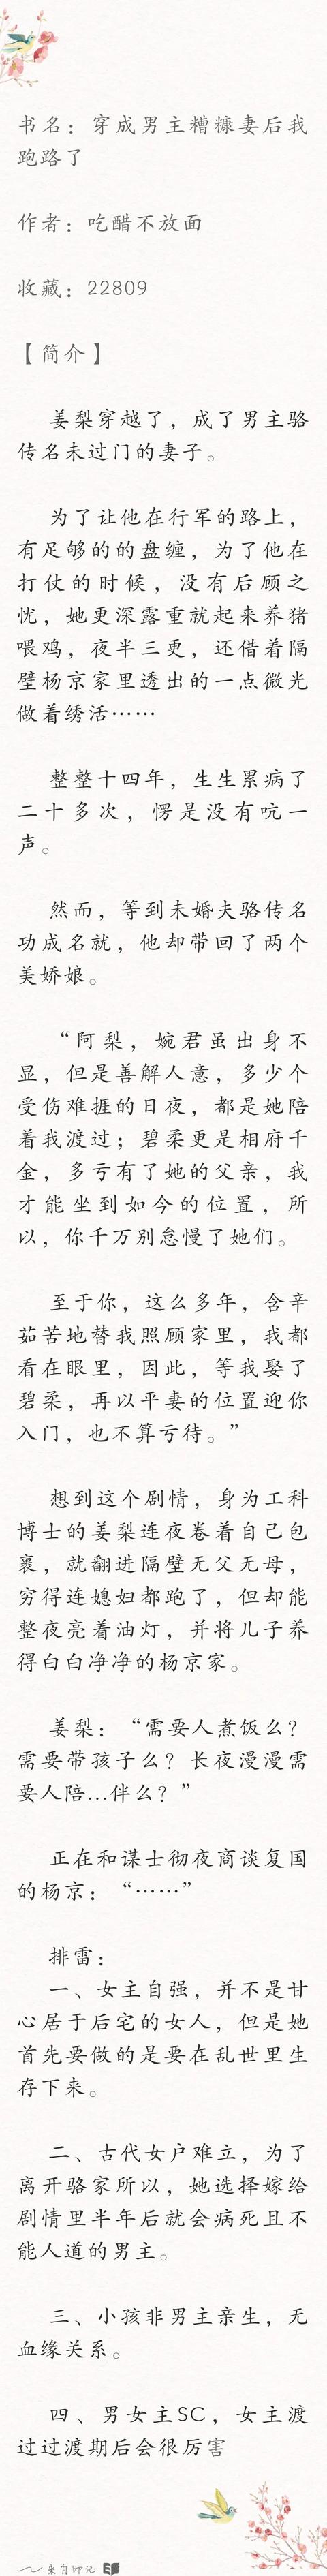 书名：穿成男主糟糠妻后我
跑路了
作者：吃醋不放面
收藏：22809
【简介】
姜梨穿越了，成了男主骆
传名未过门的妻子。
为了让他在行军的路上，
有足够的的盘缠，为了他在
打仗的时候，没有后顾之
忧，她更深露重就起来养猪
喂鸡，夜半三更，还借着隔
壁杨京家里透出的一点微光
做着绣活……
整整十四年，生生累病了
二十多次，愣是没有吭一
声。
然而，等到未婚夫骆传名
功成名就，他却带回了两个
美娇娘。
“阿梨，婉君虽出身不
显，但是善解人意，多少个
受伤难捱的日夜，都是她陪
着我渡过；碧柔更是相府千
金，多亏有了她的父亲，我
才能坐到如今的位置，所
以，你千万别怠慢了她们。
至于你，这么多年，含辛
茹苦地替我照顾家里，我都
看在眼里，因此，等我娶了
碧柔，再以平妻的位置迎你
入门，也不算亏待。”
想到这个剧情，身为工科
博士的姜梨连夜卷着自己包
裹，就翻进隔壁无父无母，
穷得连媳妇都跑了，但却能
整夜亮着油灯，并将儿子养
得白白净净的杨京家。
姜梨：“需要人煮饭么？
需要带孩子么？长夜漫漫需
要人陪…伴么？”
正在和谋士彻夜商谈复国
的杨京：“……”
排雷：
一、女主自强，并不是甘
心居于后宅的女人，但是她
首先要做的是要在乱世里生
存下来。
二、古代女户难立，为了
离开骆家所以，她选择嫁给
剧情里半年后就会病死且不
能人道的男主。
三、小孩非男主亲生，无
血缘关系。
四、男女主SC，女主渡
过过渡期后会很厉害
来自印记